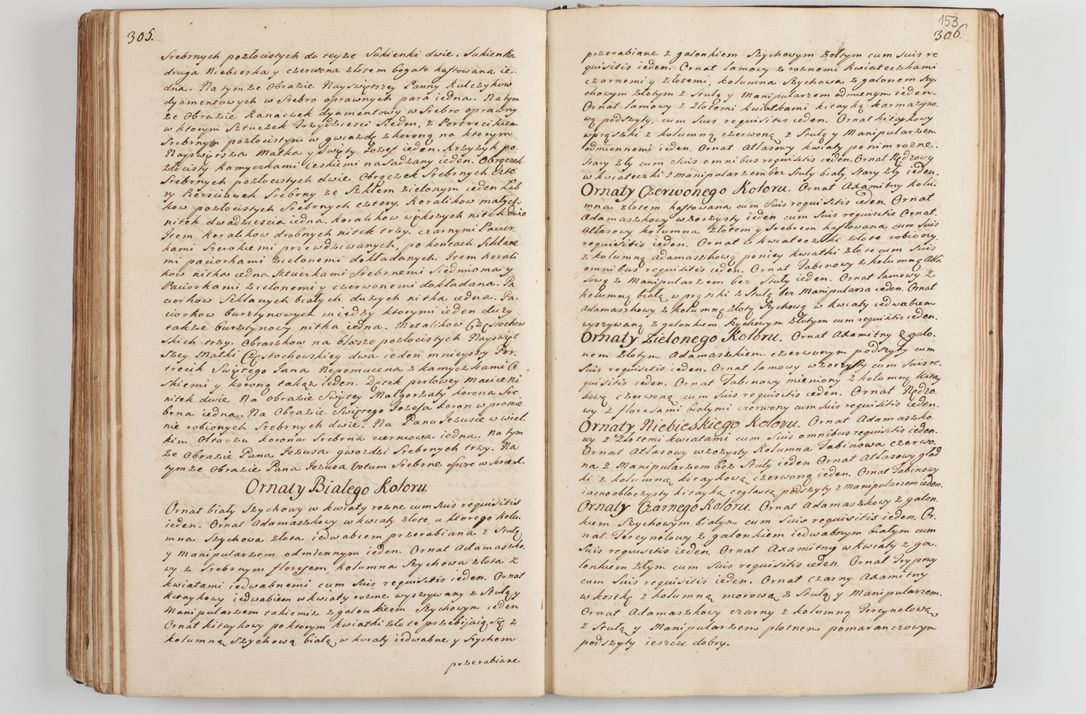 305.
Srebrnych pozłocistych do teyże Sukienki dwie. Sukienka
druga Niebieska y czerwona złotem bogato haftowana ie-
dna. Na tymże Obrazie Nayświętszey Panny Kulczykow
dyamentowych w Srebro oprawnych para iedna. Na tym
że Obrazie Kanaczek dyamentowy w Srebro oprawny
w ktorym Sztuczek Trzydziesci Siedm, z Portrecikiem
Srebrnym pozłocistym w gwiazdę z koroną na ktorym
Nayswiętsza Matka y Swięty Jozef ieden. Krzyżyk po-
złocisty kamyczkami Czeskiemi nasadzany ieden. Obrączek
Srebrnych pozłocistych dwie. Obrączek Srebrnych czte-
ry Pierścionek Srebrny ze Szkłem zielonym ieden
kow pozłocistych Srebrnych cztery. Koralikow małych
nitek dwadziescia iedna. koralikow większych nitek dwie
Item koralikow drobnych nitek trzy, czarnymi Pacior-
kami Szerokiemi przewdziewanych, po końcach Szklane
mi paciorkami zielonemi dokładanych. Item korali
kow nitka iedna Sztuczkami Srebrnemi Siedmioma y
Paciorkami zielonemi y czerwonemi dokładana. Pa-
ciorkow Szklanych białych dużych nitka iedna. Pa-
ciorkow bursztynowych między ktorymi ieden duży
także bursztynowy nitka iedna. Metalikow Częstochow
skich trzy. Obrazkow na blasze pozłocistych Nayświęt
szey Matki Częstochowskiey dwa ieden mnieyszy Por-
trecik Swiętego Jana Nepomucena z kamyczkami Cze
skiemi y koroną takąż ieden. Perek perłowey Macicy
nitek dwie Na obrazie Swiętey Małgorzaty korona Sre-
brna iedna. Na Obrazie Swiętego Jozefa koron w promie
nie robionych Srebrnych dwie. Na Panu Jezusie w wiel
kim Ołtarzu korona Srebrna cierniowa iedna. Na tym
że Obrazie Pana Jezusa gwozdzi Srebrnych trzy. Na
tymże Obrazie Pana Jezusa Votum Srebrne
Ornaty Białego Koloru.
Ornat biały Szychowy w kwiaty rożne cum suis requisitis
ieden. Ornat Adamaszkowy w kwiaty złote u ktorego kolu-
mna Szychowa złota iedwabiem przerabiana z Stułą
y manipularzem odmiennym ieden. Ornat Adamaszko-
wy z Srebrnym floresem, kolumna Szychowa złota z
kwiatami iedwabnemi cum suis requisitis ieden. Ornat
kitaykowy iedwabiem w kwiaty rożne wyszywany z Stułą y
Manipularzem takiemiż z galonkiem Szychowym ieden
Ornat kitaykowy po ktorym kwiatki złote przebijaią się z
kolumną Szychową białą w kwiaty iedwabne y Szychem
przerabiane
153
306.
przerabiane z galonkiem Szychowym żołtym cum suis re
quisitis ieden. Ornat lamowy z rożnemi kwiateczkami
czarnemi y złotemi, kolumna Szychowa z galonem Szy
chowym złotym z Stułą y Manipularzem odmiennym ieden.
Ornat lamowy z złotemi kwiatkami kitayką karmazyno-
wą podszyty, cum suis requisitis ieden. Ornat kitaykowy
w prążki z kolumną czerwoną z Stułą y Manipularzem
odmiennemi ieden. Ornat Atłasowy kwiaty po nim rożne
stary zły cum suis omnibus requisitis ieden. Ornat
w kwiateczki z manipularzem bez Stuły biały stary zły ieden.
Ornaty Czerwonego Koloru. Ornat Axamitny kolu-
mna złotem haftowana cum suis requisitis ieden. Ornat
Adamaszkowy wzorzysty ieden cum suis requisitis Ornat
Atłasowy kolumna złotem y Srebrem haftowana cum suis
requisitis ieden. Ornat w kwiateczki złote robiony
z kolumną adamaszkową poniey kwiatki złote cum suis
omnibus requisitis ieden. Ornat Tabinowy z kolumną Atła
sową z Manipularzem bez Stuły ieden. Ornat lamowy z
kolumną białą w prążki z Stułą bez Manipularza ieden. Ornat
Adamaszkowy z kolumną złotą Szychową w kwiaty iedwabiem
wyszywaną z galonkiem Szychowym złotym cum requisitis ieden.
Ornaty Zielonego Koloru. Ornat Axamitny z galo-
nem złotym Adamaszkiem czerwonym podszyty cum
suis requisitis ieden. Ornat lamowy wzorzysty cum suis re-
quisitis ieden. Ornat Tabinowy mieniony z kolumną kitay
kową czerwoną cum suis requisitis ieden. Ornat
wy z floresami białymi czerwony cum suis requisitis ieden.
Ornaty Niebieskiego Koloru. Ornat Adamaszko-
wy z złotemi kwiatami cum suis omnibus requisitis ieden.
Ornat Atłasowy wzorzysty kolumna Tabinowa czerwo-
na z Manipularzem bez Stuły ieden Ornat Atłasowy gład
ki z kolumną kitaykową czerwoną ieden. Ornat Tabinowy
iasnoobłoczysty kitayką ceglastą podszyty z manipularzem ieden.
Ornaty Czarnego Koloru. Ornat Adamaszkowy z galon-
kiem Szychowym białym cum suis requisitis ieden. Or-
nat Tercynelowy z galonkiem iedwabnym białym cum
suis requisitis ieden. Ornat Axamitny w kwiaty z ga-
lonkiem złym cum suis requisitis ieden. Ornat Trypowy
cum suis requisitis ieden. Ornat czarny Axamitny
w kostkę z kolumną morową z Stułą y Manipularzem.
Ornat Adamaszkowy czarny z kolumną Tercynelową
z Stułą y Manipularzem płotnem pomaranczowym
podszyty ieszcze dobry.